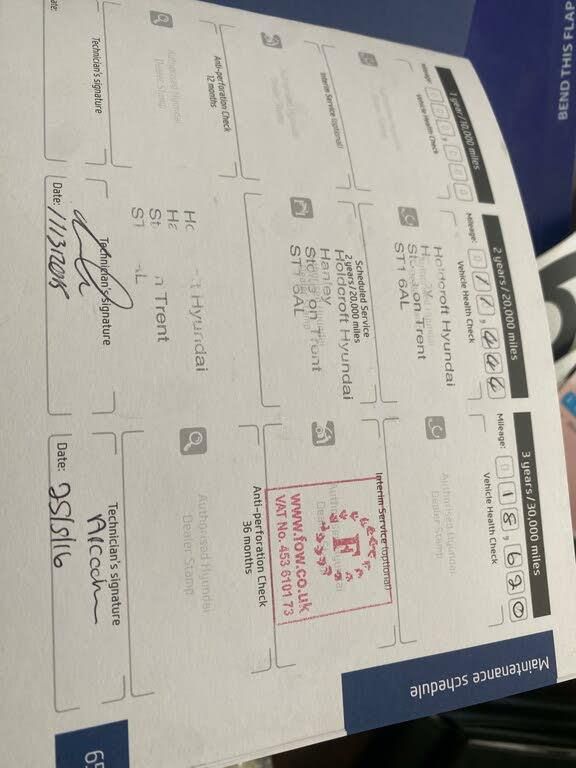 BEND THIS FLAP
Maintenance schedule
1 year/10,000 miles
Mileage:
Vehicle Health Check
Interim Service (optional)
Anti-perforation Check
12 months
Authorised Hyundai
Dealer Stamp
Technician's signature
Date:
2 years/20,000 miles
Mileage: 0 11,444
Vehicle Health Check
Holdcroft Hyundai
Stoke on Trent
ST1 6AL
Scheduled Service
2 years/20,000 miles
Holdcroft Hyundai
Hanley
Stoke on Trent
ST1 6AL
Hyundai
Trent
Technician's signature
Date:
3 years/30,000 miles
Mileage: 0 18,620
Vehicle Health Check
Authorised Hyundai
Dealer Stamp
Interim Service (optional)
F
www.fow.co.uk
VAT No. 453 6101 73
Anti-perforation Check
36 months
Authorised Hyundai
Dealer Stamp
Technician's signature
Date: 25/5/16
65